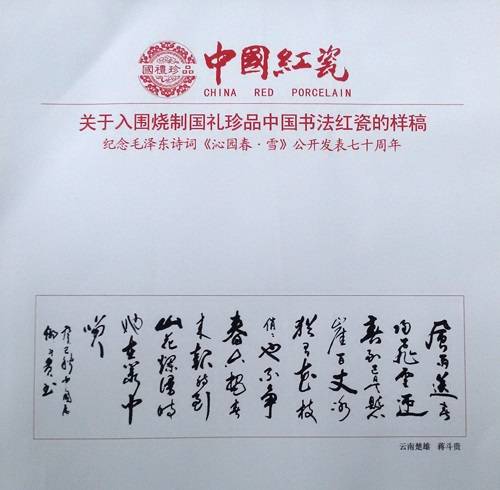 國禮珍品
中國紅瓷
CHINA RED PORCELAIN
关于入围烧制国礼珍品中国书法红瓷的样稿
纪念毛泽东诗词《沁园春·雪》公开发表七十周年
風雨送春
歸飛雪迎
春到已是懸
崖百丈冰
猶有花枝
俏〻也不争
春只把春
来報待到
山花爛漫時
她在叢中
笑
癸巳 中國
蒋斗贵书
云南楚雄 蒋斗贵